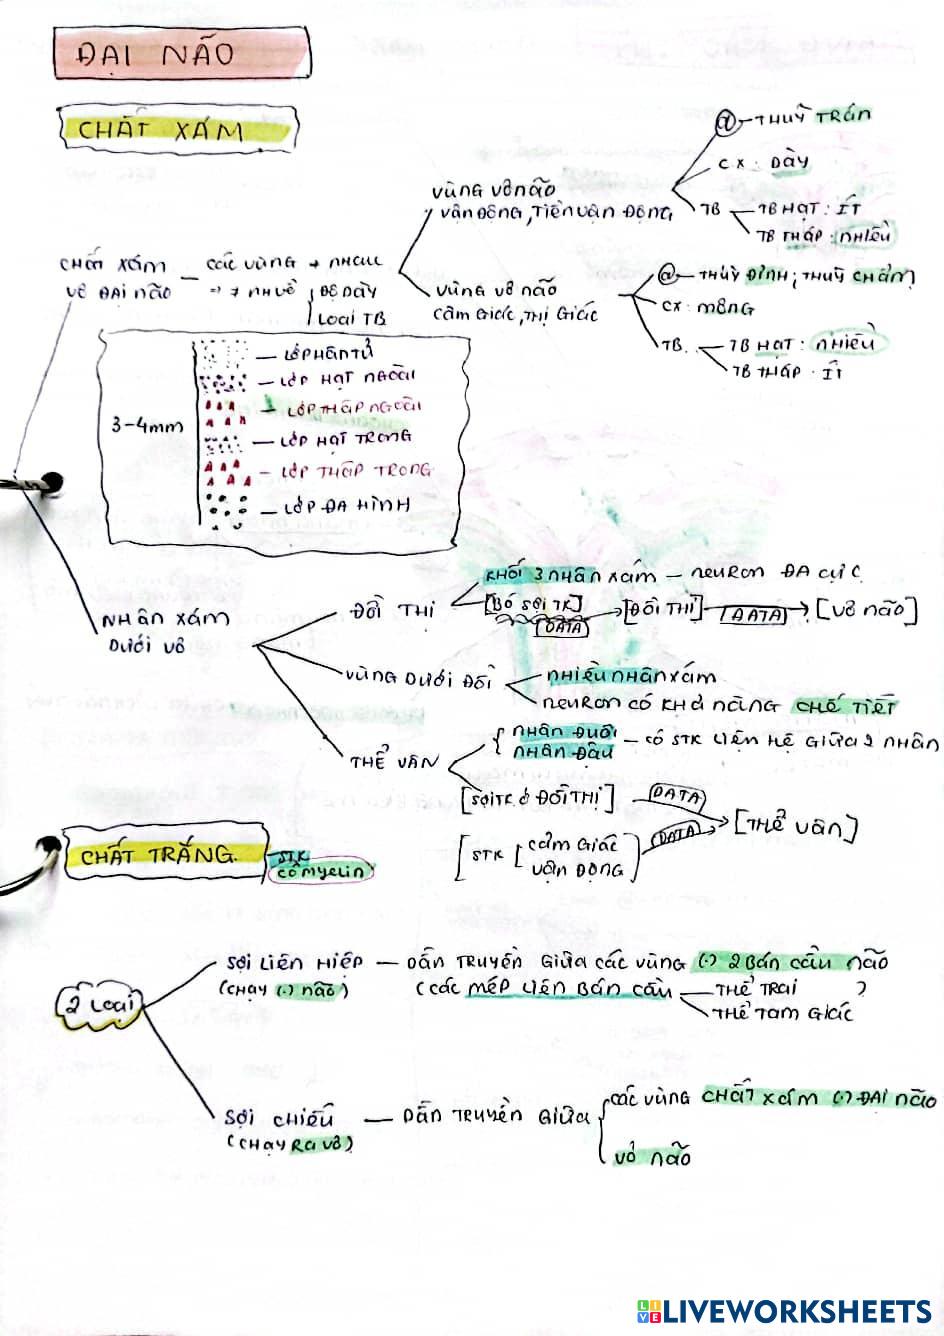 ĐẠI NÃO
CHẤT XÁM
@ – THUỲ TRÁN
CX : DÀY
TB – TB HẠT : ÍT
TB THÁP : NHIỀU
VÙNG VỎ NÃO
VẬN ĐỘNG, TIỀN VẬN ĐỘNG
CHẤT XÁM – CÁC VÙNG ≠ NHAU
VỎ ĐẠI NÃO ⇒ ≠ NHVỀ ĐỘ DÀY
LOẠI TB
VÙNG VỎ NÃO
CẢM GIÁC, THỊ GIÁC
@ – THUỲ ĐỈNH ; THUỲ CHẨM
CX : MỎNG
TB. – TB HẠT : NHIỀU
TB THÁP : ÍT
3-4mm
LỚP PHÂN TỬ
LỚP HẠT NGOÀI
LỚP THÁP NGOÀI
LỚP HẠT TRONG
LỚP THÁP TRONG
LỚP ĐA HÌNH
NHÂN XÁM
DƯỚI VỎ
ĐỒI THỊ
KHỐI 3 NHÂN XÁM – NEURON ĐA CỰC
[BÓ SỢI TK] DATA [ĐỒI THỊ] DATA [VỎ NÃO]
VÙNG DƯỚI ĐỒI
NHIỀU NHÂN XÁM
NEURON CÓ KHẢ NĂNG CHẾ TIẾT
THỂ VÂN
NHÂN ĐUÔI
NHÂN ĐẬU – CÓ STK LIÊN HỆ GIỮA 2 NHÂN
[SỢI TK Ở ĐỒI THỊ] DATA
[THỂ VÂN]
[STK [CẢM GIÁC VẬN ĐỘNG] DATA
CHẤT TRẮNG.
STK
CÓ MYELIN
2 LOẠI
SỢI LIÊN HIỆP – DẪN TRUYỀN GIỮA CÁC VÙNG (.) 2 BÁN CẦU NÃO
(CHẠY (.) NÃO) (CÁC MÉP LIÊN BÁN CẦU – THỂ TRAI )
THỂ TAM GIÁC
SỢI CHIẾU – DẪN TRUYỀN GIỮA
(CHẠY RA VỎ)
CÁC VÙNG CHẤT XÁM (.) ĐẠI NÃO
VỎ NÃO
LIVE LIVEWORKSHEETS